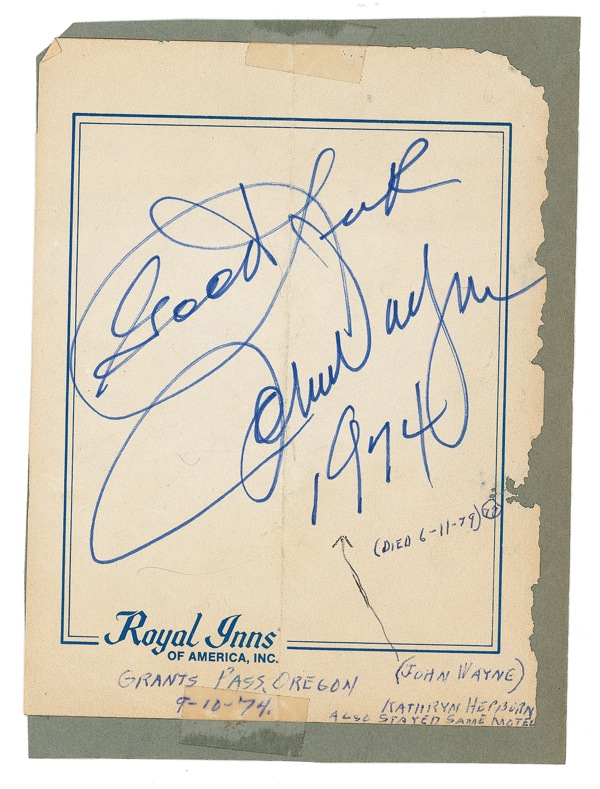 Good Luck
John Wayne
1974
(DIED 6-11-79) 72
Royal Inns
OF AMERICA, INC.
GRANTS PASS, OREGON
9-10-'74.
(JOHN WAYNE)
KATHRYN HEPBURN
ALSO STAYED SAME MOTEL